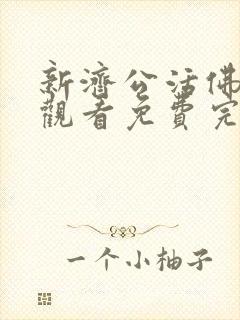 新濟公活佛
觀看免費完
一个小柚子